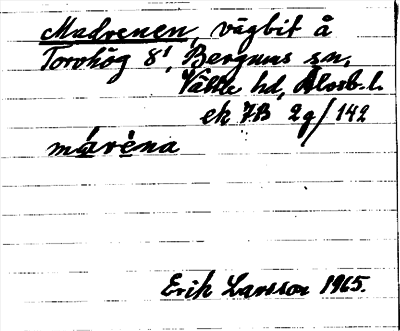 Madrenen, vägbit å
Torvhög 8¹, Bergums sn,
Vättle hd, Älvsb. l.
ek 7B 2g/142
márèna
Erik Larsson 1965.